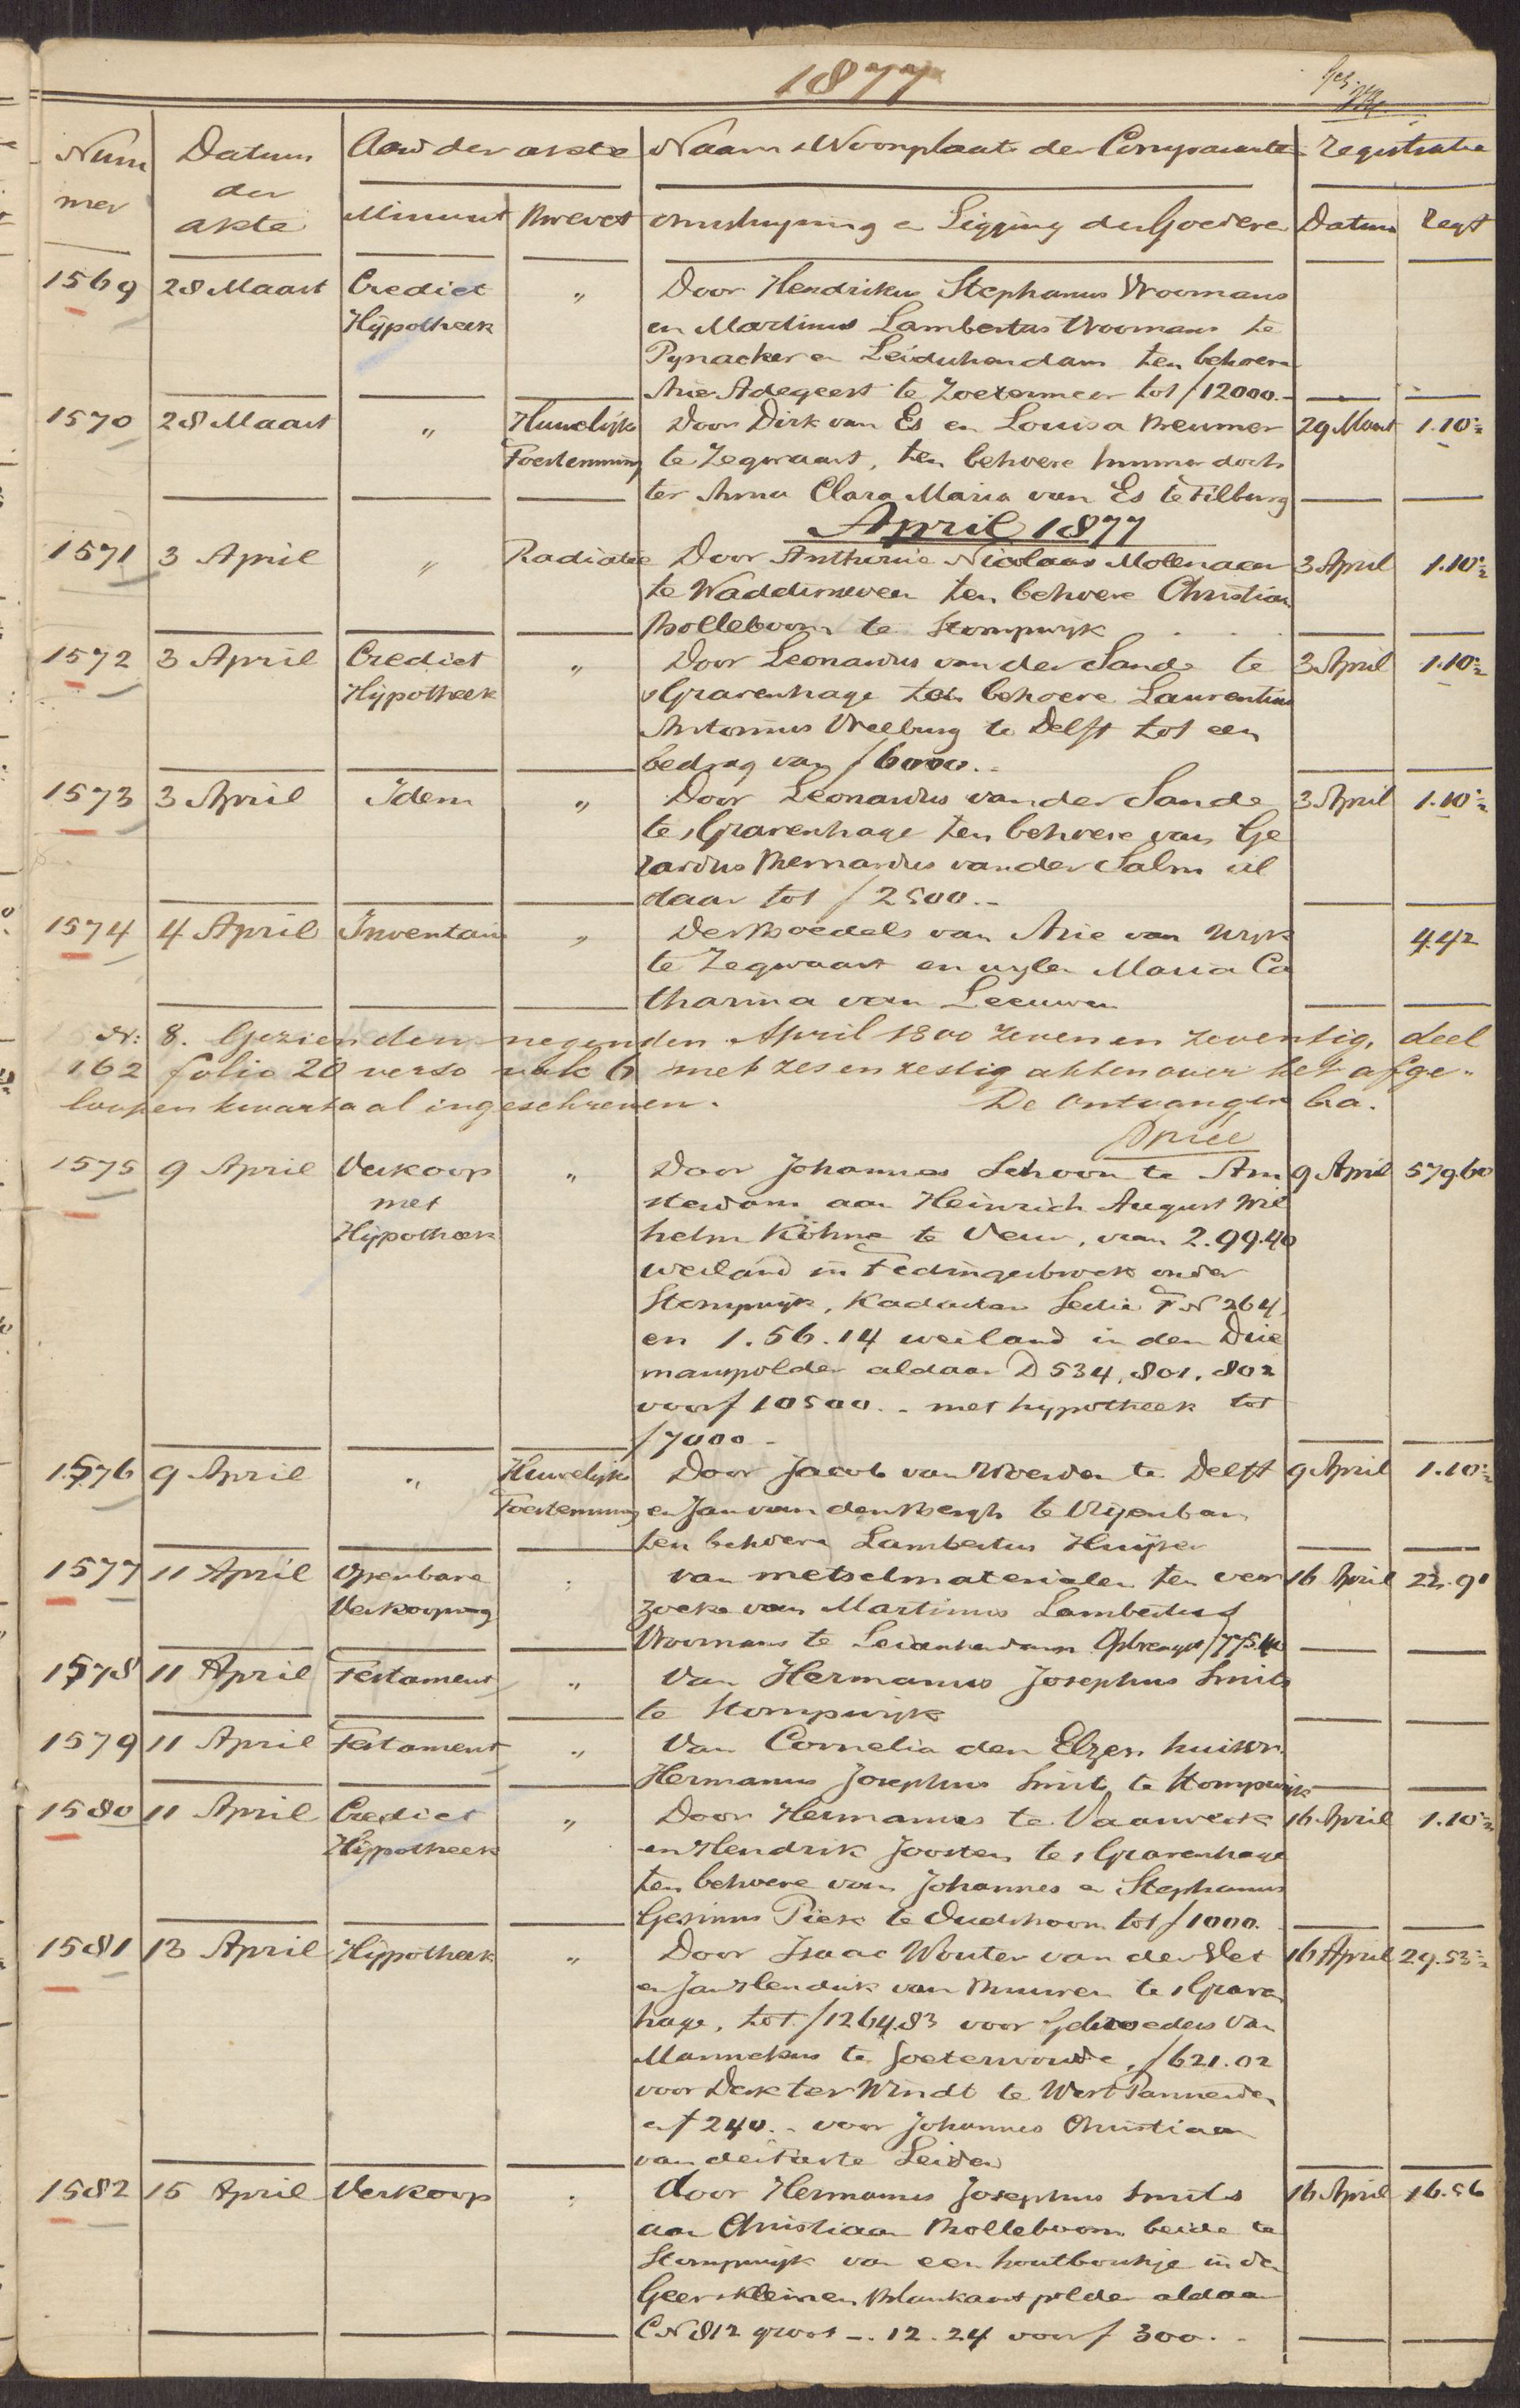 1877
Num
mer
Datum
der
akte
Aard der akte
Minuut Brevet
Naam & Woonplaats der Comparanten
omschrijving en Ligging der Goederen
Registratie
Datum Regt
1569 28 Maart Crediet " Door Hendrikus Stephanus Vroomans
Hijpotheek en Martinus Lambertus Vroomans te
Pynacker en Leidschendam ten behoeve
Arie Adegeest te Zoetermeer tot f 12000.-
1570 28 Maart " Huwelijks Door Dirk van Es en Louisa Breumer 29 Maart 1.10
Toestemming te Zegwaart, ten behoeve hunner doch
ter Anna Clara Maria van Es te Tilburg
April 1877
1571 3 April " Radiatie Door Anthonie Nicolaas Molenaar 3 April 1.10
te Waddinxveen ten behoeve Christiaan
Bolleboom te Stompwijk
1572 3 April Crediet " Door Leonardus van der Sande te 3 April 1.10
Hijpotheek sGravenhage ten behoeve Laurentius
Antonius Vreeburg te Delft tot een
bedrag van f 6000.-
1573 3 April Idem " Door Leonardus van der Sande 3 April 1.10
te sGravenhage ten behoeve van Ge
rardus Bernardus van der Salm al
daar tot f 2500.-
1574 4 April Inventaris " Des Boedels van Arie van Wyk 4.42
te Zegwaart en wylen Maria Ca
tharina van Leeuwen
N: 8. Gezien den negenden April 1800 zeven en zeventig, deel
162 folio 20 verso vak 6 met zes en zestig akten over het afge-
loopen kwartaal ingeschreven. De Ontvanger
1575 9 April Verkoop " Door Johannes Schoon te Am 9 April 579.60
met sterdam aan Heinrich August Wil
Hijpotheek helm Köhne te Veur, van 2.99.40
weiland in Tedingerbroek onder
Stompwijk, Kadaster Sectie F N 264,
en 1.56.14 weiland in den Drie
manspolder aldaar D 534, 801, 802
voor f 10500.- met hypotheek tot
f 7000.-
1576 9 April " Huwelijks Door Jacob van Woerden te Delft 9 April 1.10
Toestemming en Jan van den Bergh te Vrijenban
ten behoeve Lambertus Huijser
1577 11 April Openbare " van metselmaterialen ten ver 16 April 22.91
Verkooping zoeke van Martinus Lambertus
Vroomans te Leidschendam Opbrengst f 775.
1578 11 April Testament " Van Hermanus Josephus Smits
te Stompwijk
1579 11 April Testament " Van Cornelia den Elzen huisvr.
Hermanus Josephus Smits te Stompwijk
1580 11 April Crediet " Door Hermanus te Vaanwerk 16 April 1.10
Hijpotheek en Hendrik Joosten te sGravenhage
ten behoeve van Johannes en Stephanus
Gesinus Piek te Oudshoorn tot f 1000.
1581 13 April Hijpotheek " Door Isaac Wouter van der Vet 16 April 29.53
en Jan Hendrik van Buuren te sGraven
hage, tot f 1264.83 voor Gebroeders van
Mannekus te Zoeterwoude, f 621.02
voor Derk ter Windt te West Pannerden
en f 240.- voor Johannes Christiaan
van de te Leiden
1582 15 April Verkoop " door Hermanus Josephus Smits 16 April 16.56
aan Christiaan Bolleboom beide te
Stompwijk van een houtboschje in de
Geer & kleinen Blankaart polder aldaar
C N 812 groot -.12.24 voor f 300.-